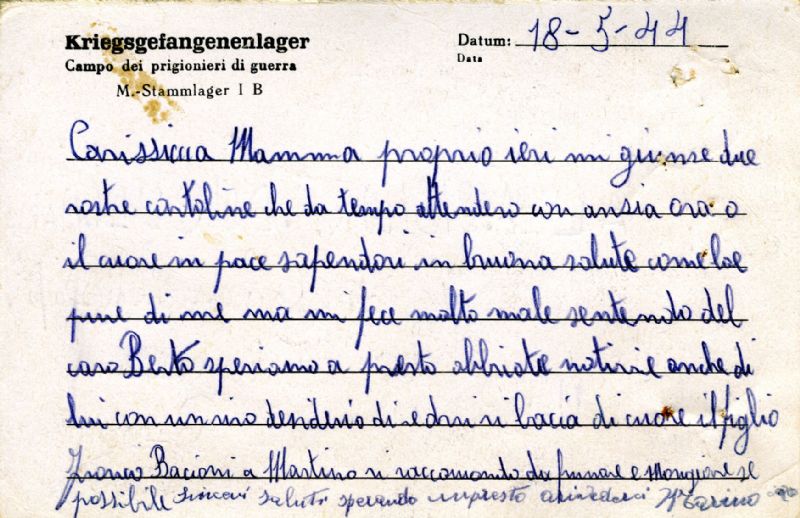 Kriegsgefangenenlager
Campo dei prigionieri di guerra
M.-Stammlager I B
Datum: 18-5-44
Data
Carissima Mamma proprio ieri mi giunse due
vostre cartoline che da tempo attendevo con ansia ora o
il cuore in pace sapendovi in buona salute come loe
pure di me ma mi fece molto male sentendo del
caso Berto speriamo a presto abbiate notizie anche di
lui con un vivo desiderio di vedervi vi bacia di cuore il figlio
Franco Bacioni a Martino vi raccomando da fumare e Mangiare se
possibile sinceri saluti sperando un presto arivederci